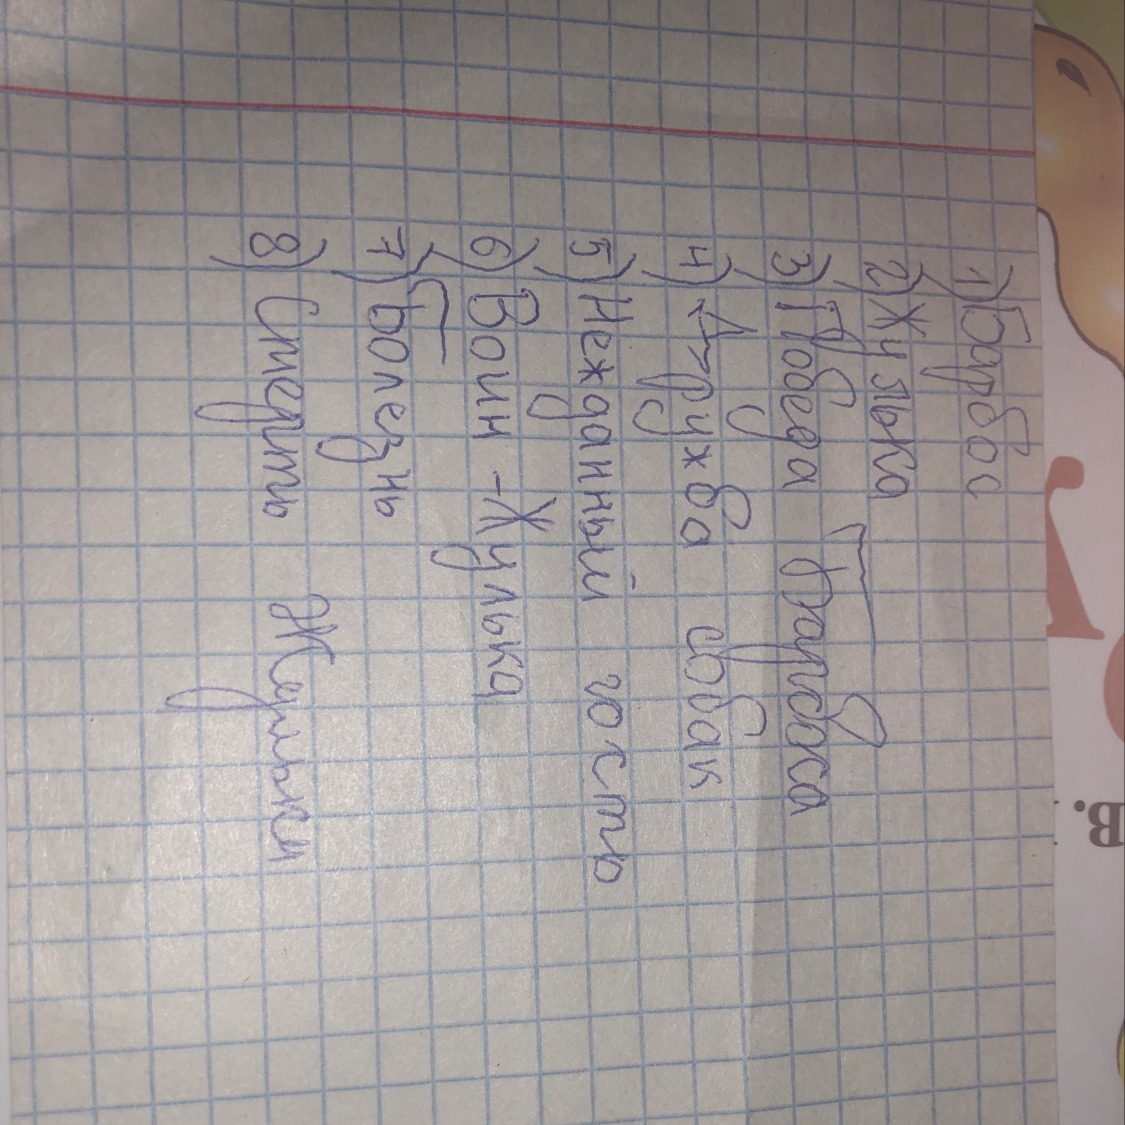 1) Барбос
2) Жулька
3) Победа Барбоса
4) Дружба собак
5) Нежданный гостю
6) Воин - Жулька
7) Болезнь
8) Смерть Жульки
В.